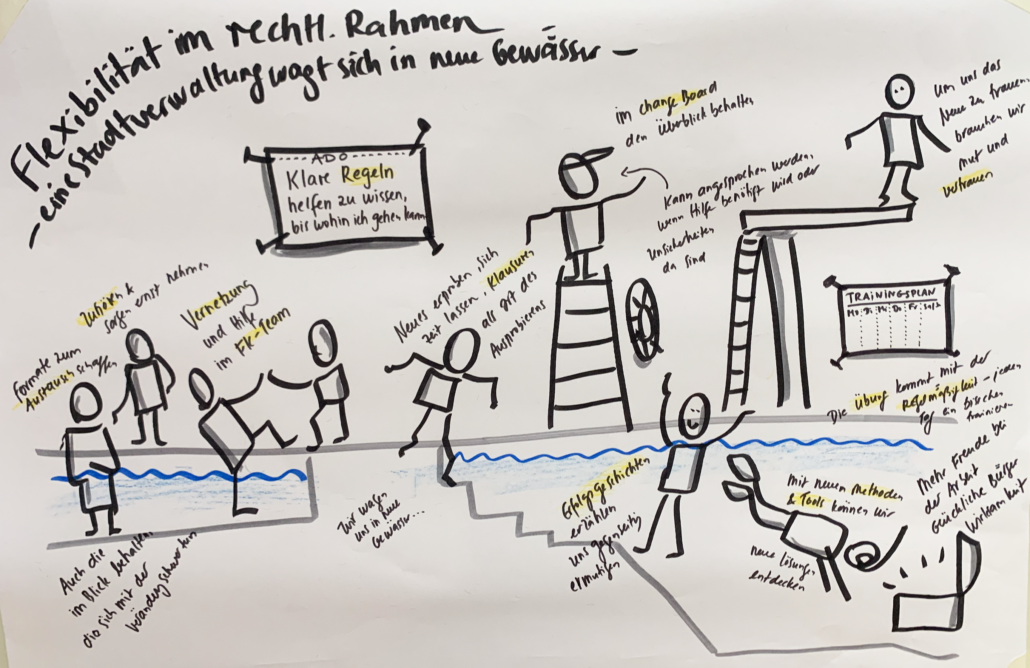 Flexibilität im rechtl. Rahmen
- eine Stadtverwaltung wagt sich in neue Gewässer -
ADO
Klare Regeln
helfen zu wissen,
bis wohin ich gehen kann
im change Board
den überblick behalten
Kann angesprochen werden,
wenn Hilfe benötigt wird oder
Unsicherheiten
da sind
um uns das
Neue zu trauen,
brauchen wir
mut und
vertrauen
TRAININGSPLAN
Mo Di Mi Do Fr
Die übung kommt mit der
Regelmäßigkeit - jeden
Tag ein bisschen
trainieren
Zuhören &
sorgen ernst nehmen
Formate zum
Austausch schaffen
Vernetzung
und Hilfe
im FK-Team
Neues erproben, sich
zeit lassen, Klausuren
als ort des
Ausprobierens
Auch die
im Blick behalten
die sich mit der
veränderung schwertun
Wir wagen
uns in neue
Gewässer...
Erfolgsgeschichten
erzählen
uns gegenseitig
ermutigen
mit neuen Methoden
& Tools können wir
neue lösungen
entdecken
Mehr Freude bei
der Arbeit
Glückliche Bürger
Wirksamkeit